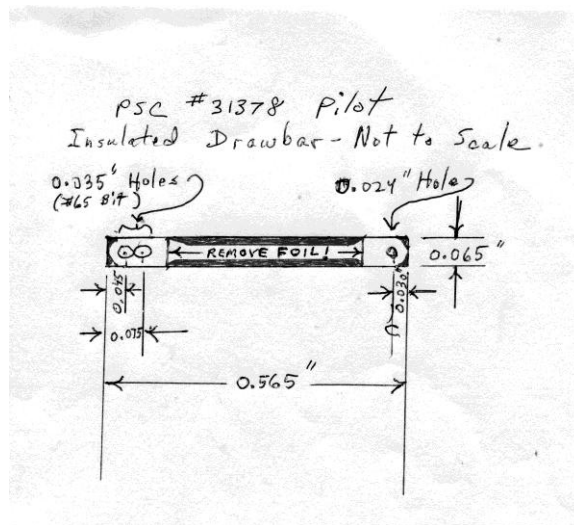 PSC #31378 Pilot
Insulated Drawbar - Not to Scale.
0.035" Holes
(#65 Bit)
0.024" Hole
REMOVE FOIL!
0.065"
0.045
0.030"
0.075
0.565"